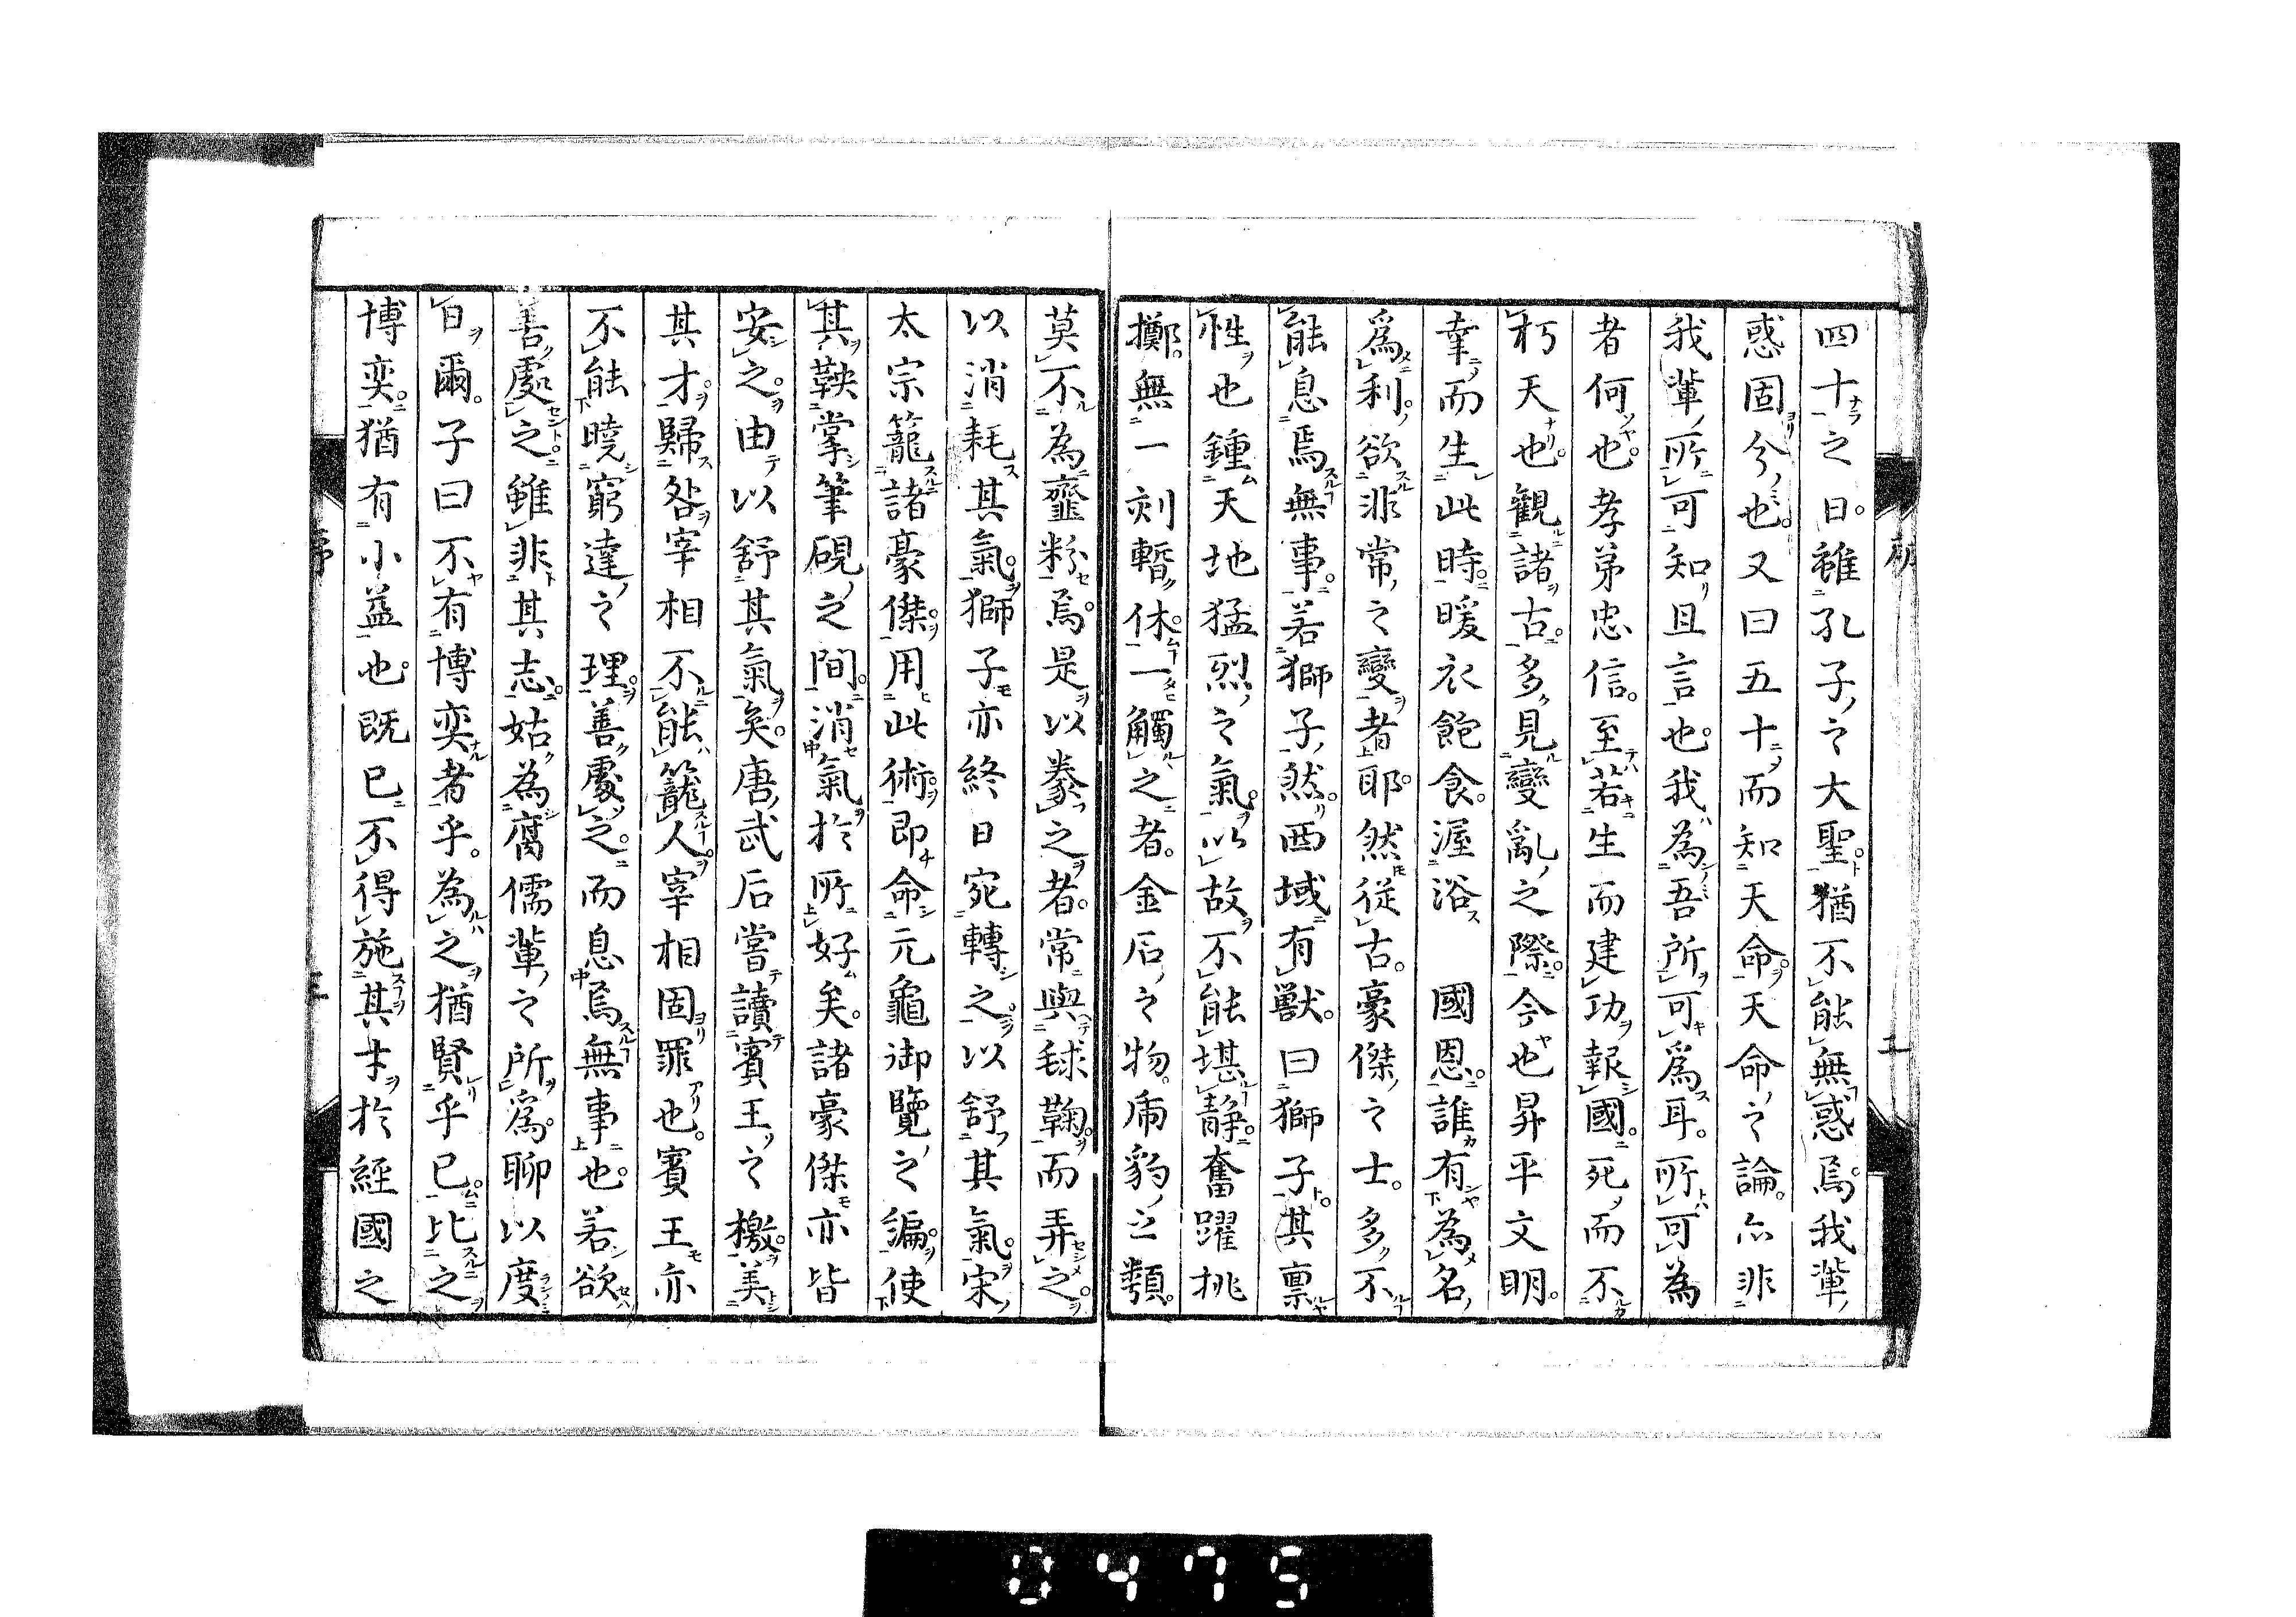 四十之日。雖孔子之大聖。猶不能無惑焉。我輩
惑固分也。又曰五十而知天命。天命之論。亦非
我輩所可知。且言也。我為吾所可爲耳。所可為
者何也。孝弟忠信。至若生而建功報國。死而不
朽天也。觀諸古。多見變亂之際。今也昇平文明。
幸而生此時。暖衣飽食。渥浴 國恩。誰有為名
爲利。欲非常之變者耶。然從古。豪傑之士。多不
能息焉無事。若獅子然。西域有獸。曰獅子。其稟
性也鍾天地猛烈之氣。以故不能堪静。奮躍挑
擲。無一刻暫休。一觸之者。金石之物。虎豹之類。
莫不為虀粉焉。是以豢之者。常與毬鞠。而弄之。
以消耗其氣。獅子亦終日宛轉之。以舒其氣。宋
太宗籠諸豪傑。用此術。即命元龜御覽之編。使
其鞅掌筆硯之間。消氣於所好矣。諸豪傑亦皆
安之。由以舒其氣矣。唐武后嘗讀賓王之檄。美
其才。歸咎宰相不能籠人。宰相固罪也。賓王亦
不能曉窮達之理。善處之。而息焉無事也。若欲
善處之。雖非其志。姑為腐儒輩之所爲。聊以度
日爾。子曰不有博奕者乎。為之猶賢乎已。比之
博奕。猶有小益也。既已不得施其才於経國之
0475